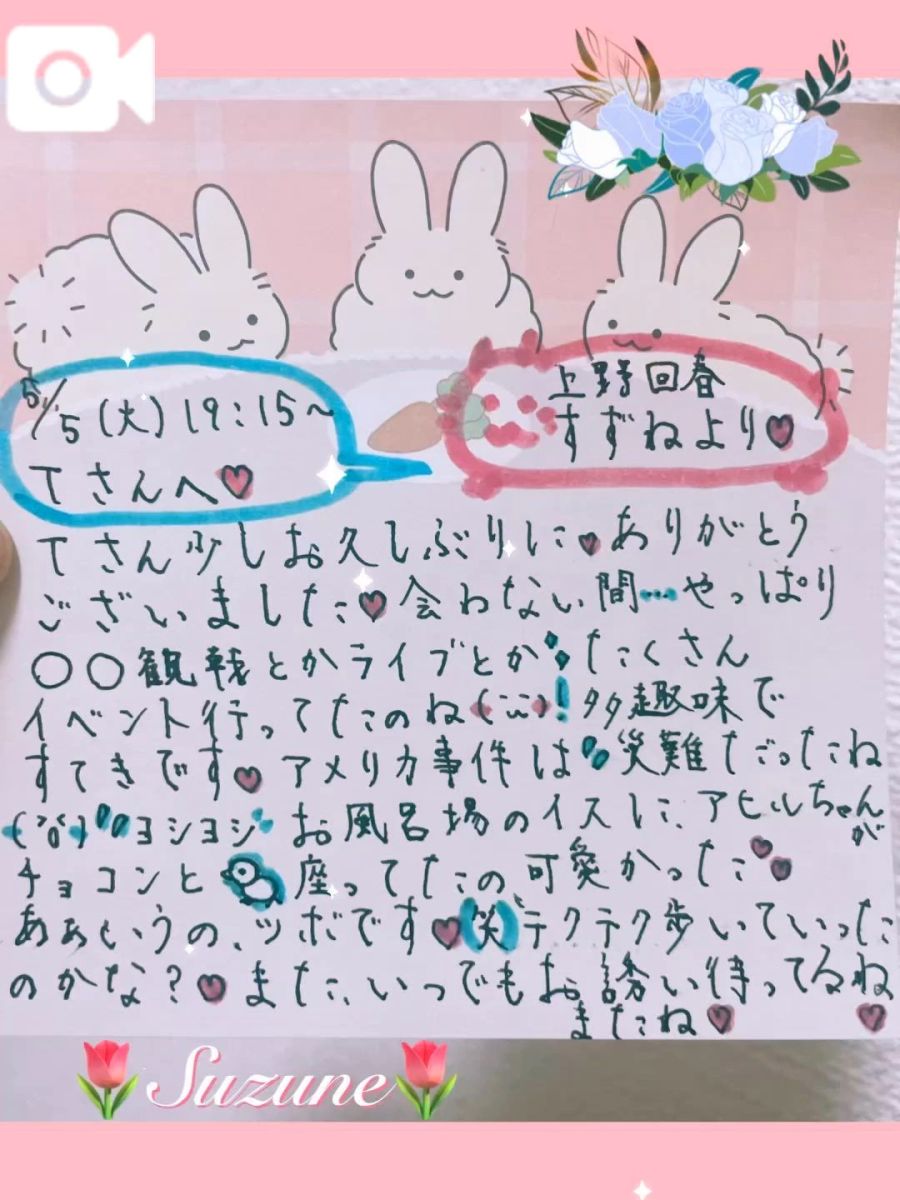 5/5(火)19:15~
Tさんへ♥
上野回春
すずねより♥
Tさん少しお久しぶりに♥ありがとう
ございました♥会わない間…やっぱり
〇〇観戦とかライブとか たくさん
イベント行ってたのね(¨)!多趣味で
すてきです♥アメリカ事件は 災難だったね
ヨシヨシ お風呂場のイスに、アヒルちゃんが
チョコンと 座ってたの、可愛かった♥
あぁいうの、ツボです♥(笑)テクテク歩いていった
のかな?♥また、いつでもお誘い待ってるね♥
またね♥
Suzune